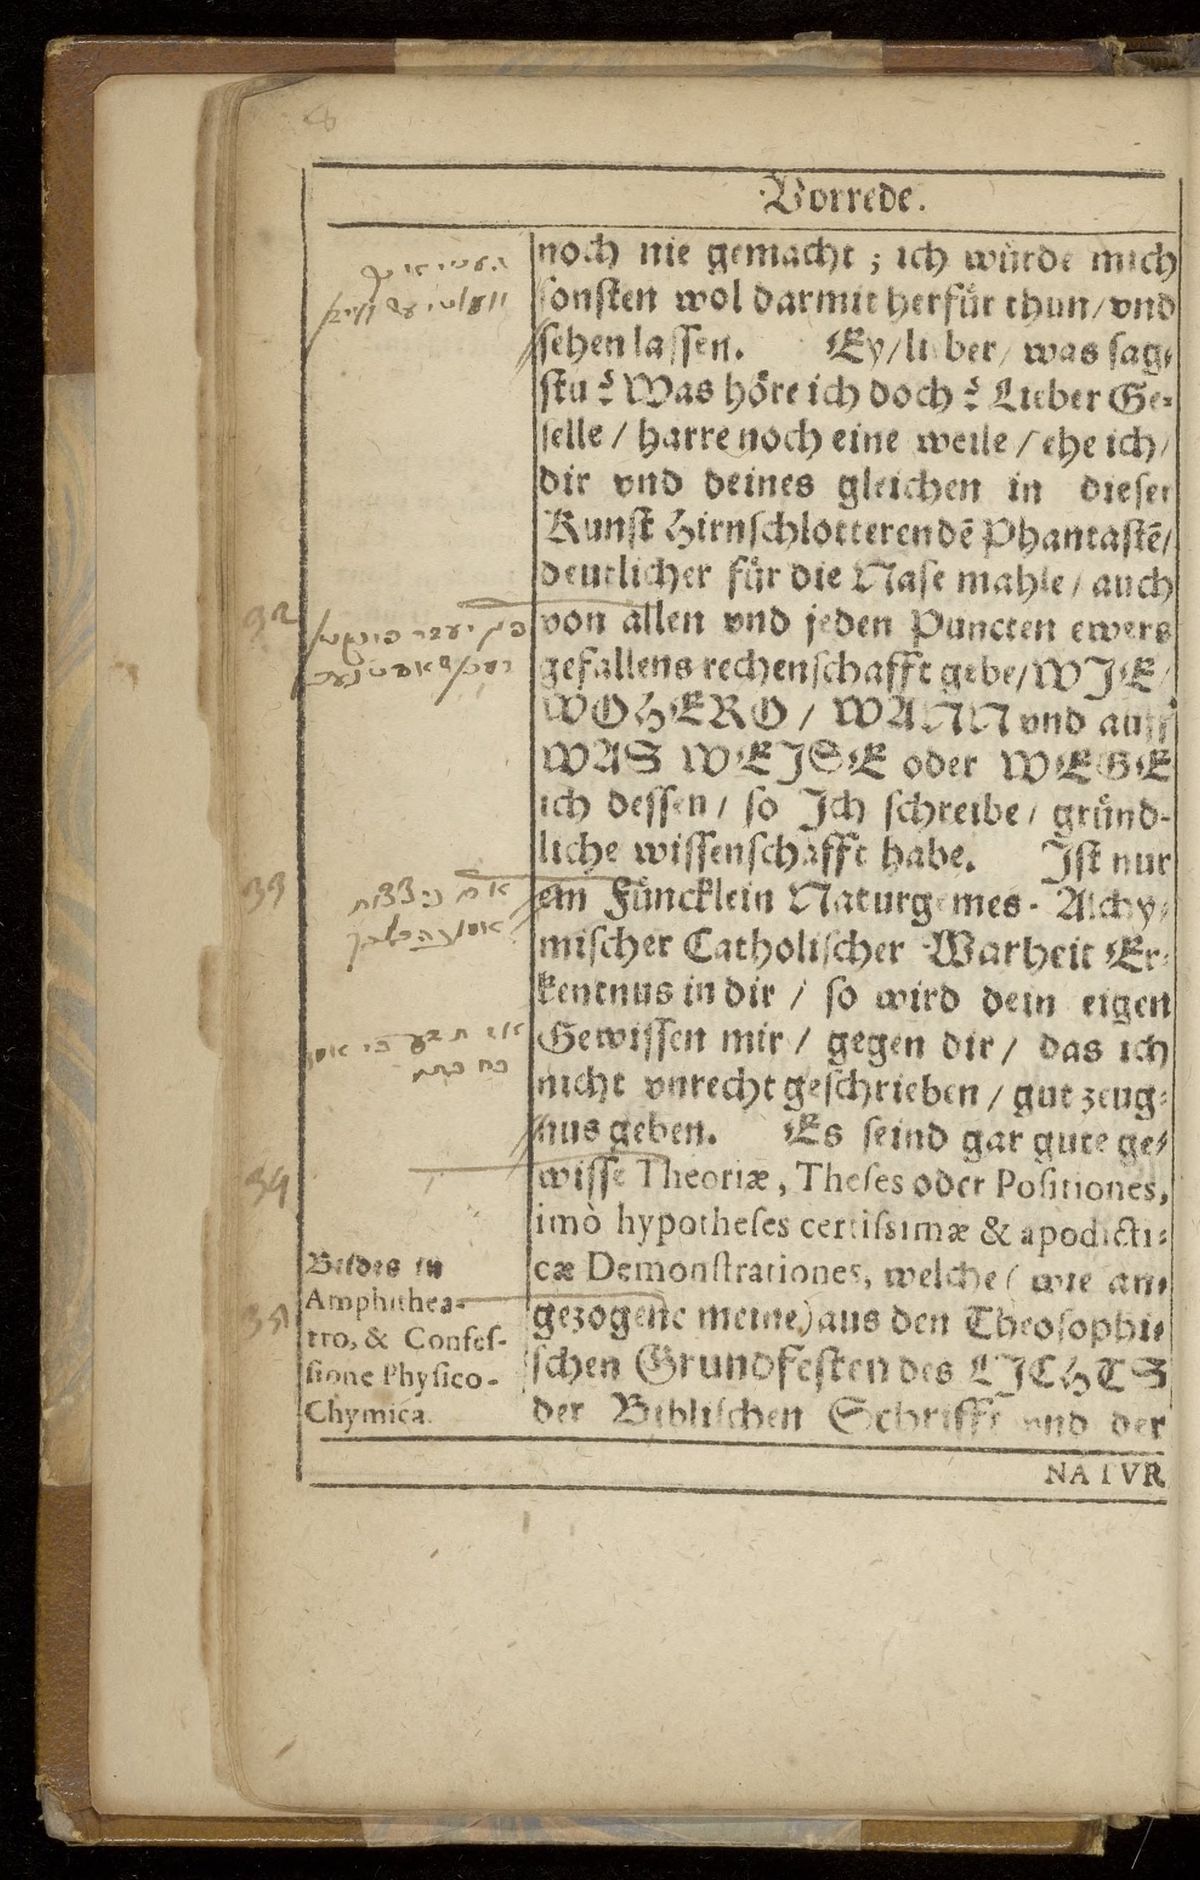 Vorrede.
noch nie gemacht; ich würde mich
sonsten wol darmit herfür thun/ vnd
sehen lassen. Ey/lieber/ was sag-
stu? Was höre ich doch? Lieber Ge-
selle / harre noch eine weile / ehe ich/
dir vnd deines gleichen in dieser
Kunst Hirnschlotterendē Phantastē/
deutlicher für die Nase mahle / auch
von allen vnd jeden Puncten ewers
gefallens rechenschafft gebe/WIE/
WOHERO / WANN vnd auff
WAS WEISE oder WEGE
ich dessen / so Ich schreibe / gründ-
liche wissenschafft habe. Ist nur
ein Füncklein Naturgemes-Alchy-
mischer Catholischer Warheit Er-
kentnus in dir / so wird dein eigen
Gewissen mir / gegen dir / das ich
nicht vnrecht geschrieben / gut zeug-
nus geben. Es seind gar gute ge-
wisse Theoriæ, Theses oder Positiones,
imò hypotheses certissimæ & apodicti-
cæ Demonstrationes, welche ( wie an-
gezogene meine) aus den Theosophi-
schen Grundfesten des LICHTS
der Biblischen Schrifft vnd der
NATVR
33
34
35
Beides in
Amphithea-
tro, & Confes-
sione Physico-
Chymica.